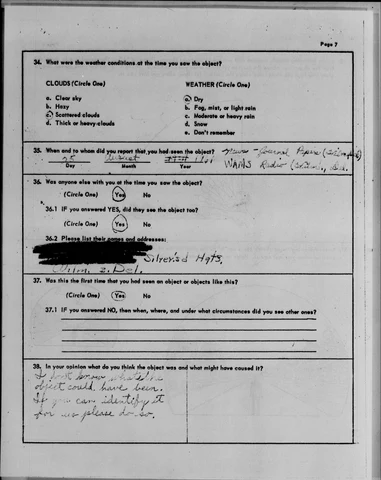 Page 7
34. What were the weather conditions at the time you saw the object?
CLOUDS (Circle One) WEATHER (Circle One)
a. Clear sky a. Dry
b. Hazy b. Fog, mist, or light rain
c. Scattered clouds c. Moderate or heavy rain
d. Thick or heavy clouds d. Snow
e. Don't remember
35. When and to whom did you report that you had seen the object? News - Journal Papers
25 August WAMS Radio
Day Month Year
36. Was anyone else with you at the time you saw the object?
(Circle One) Yes No
36.1 IF you answered YES, did they see the object too?
(Circle One) Yes No
36.2 Please list their names and addresses:
Silver'sd Hgts.
Wilm. 3. Del.
37. Was this the first time that you had seen an object or objects like this?
(Circle One) Yes No
37.1 IF you answered NO, then when, where, and under what circumstances did you see other ones?
38. In your opinion what do you think the object was and what might have caused it?
I don't know what the
object could have been.
If you can identify it
for us please do so.